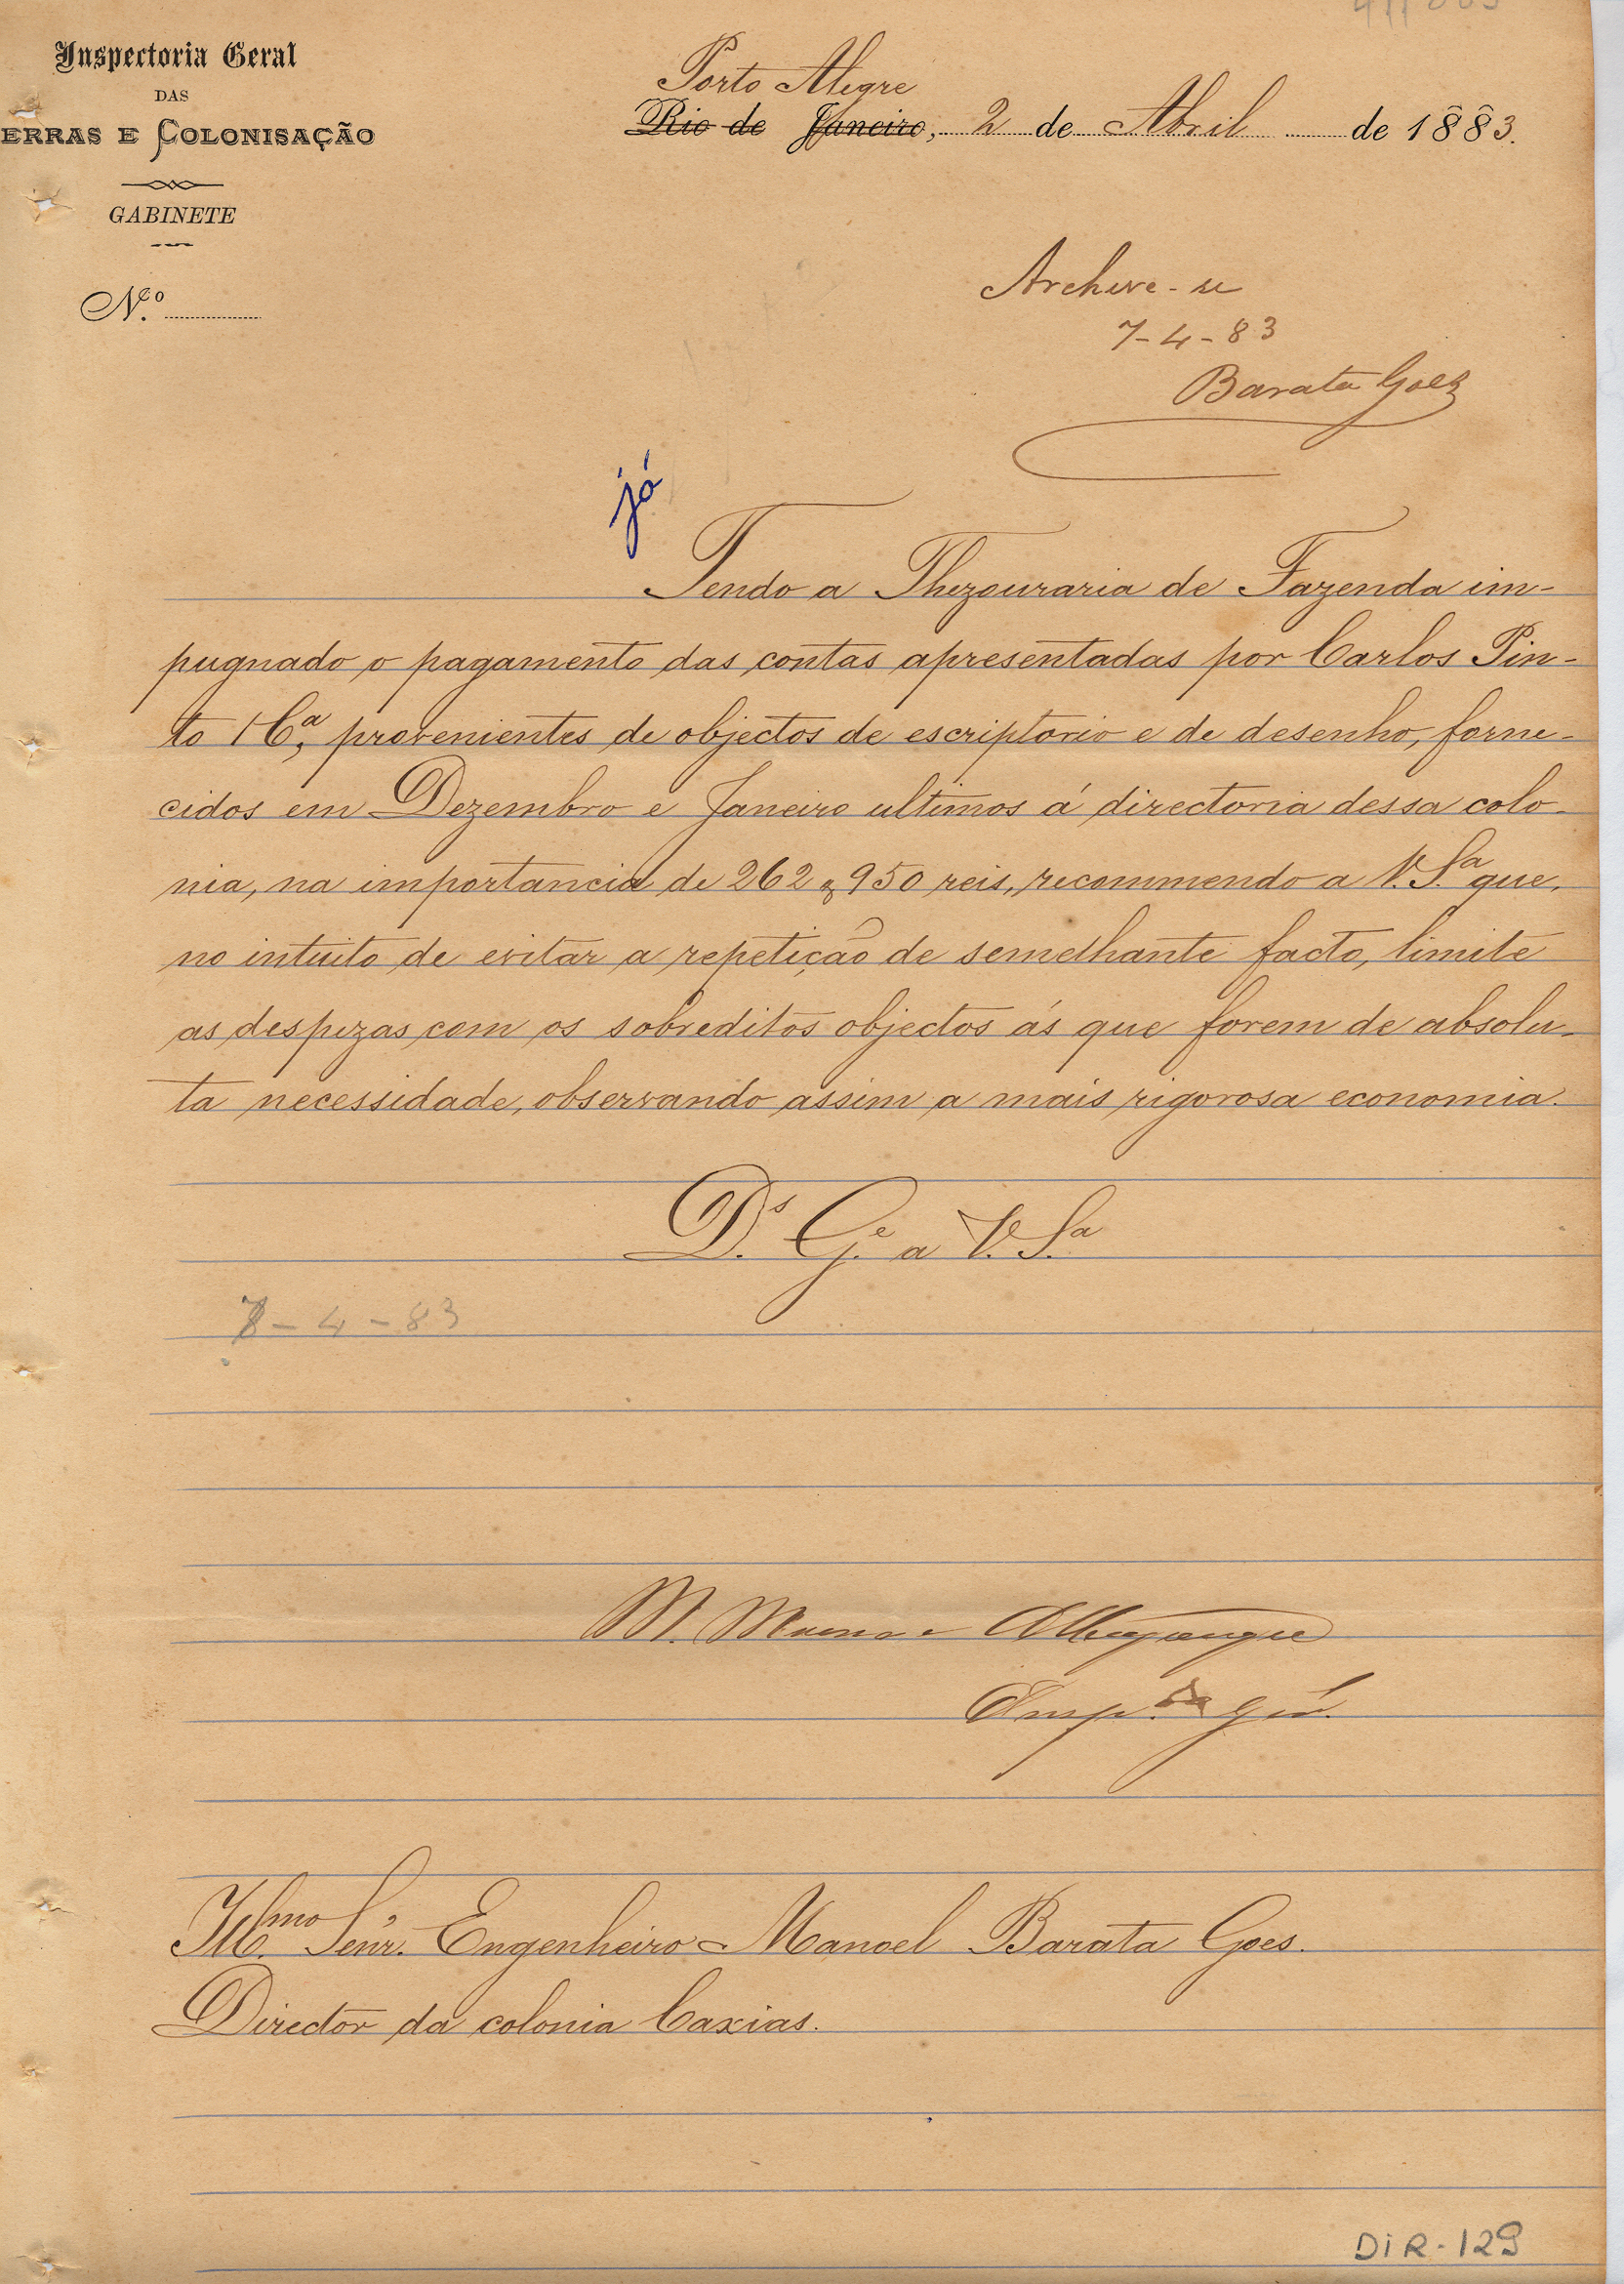 Inspectoria Geral
DAS
ERRAS E COLONISAÇÃO
GABINETE
N.º
Porto Alegre
Rio de Janeiro, 2 de Abril de 1883.
Archive-se
7-4-83
Barata Goes
já
Tendo a Thezouraria de Fazenda im-
pugnado o pagamento das contas apresentadas por Carlos Pin-
to & C.ª, provenientes de objectos de escriptorio e de desenho, forne-
cidos em Dezembro e Janeiro ultimos á directoria dessa colo-
nia, na importancia de 262$950 reis, recommendo a V. S.ª que,
no intuito de evitar a repetição de semelhante facto, limite
as despezas com os sobreditos objectos ás que forem de absolu-
ta necessidade, observando assim a mais rigorosa economia.
D.s G.e a V. S.a
7-4-83
M. Albuquerque
Insp.
Ill.mo Senr. Engenheiro Manoel Barata Goes.
Director da colonia Caxias.
DIR-129